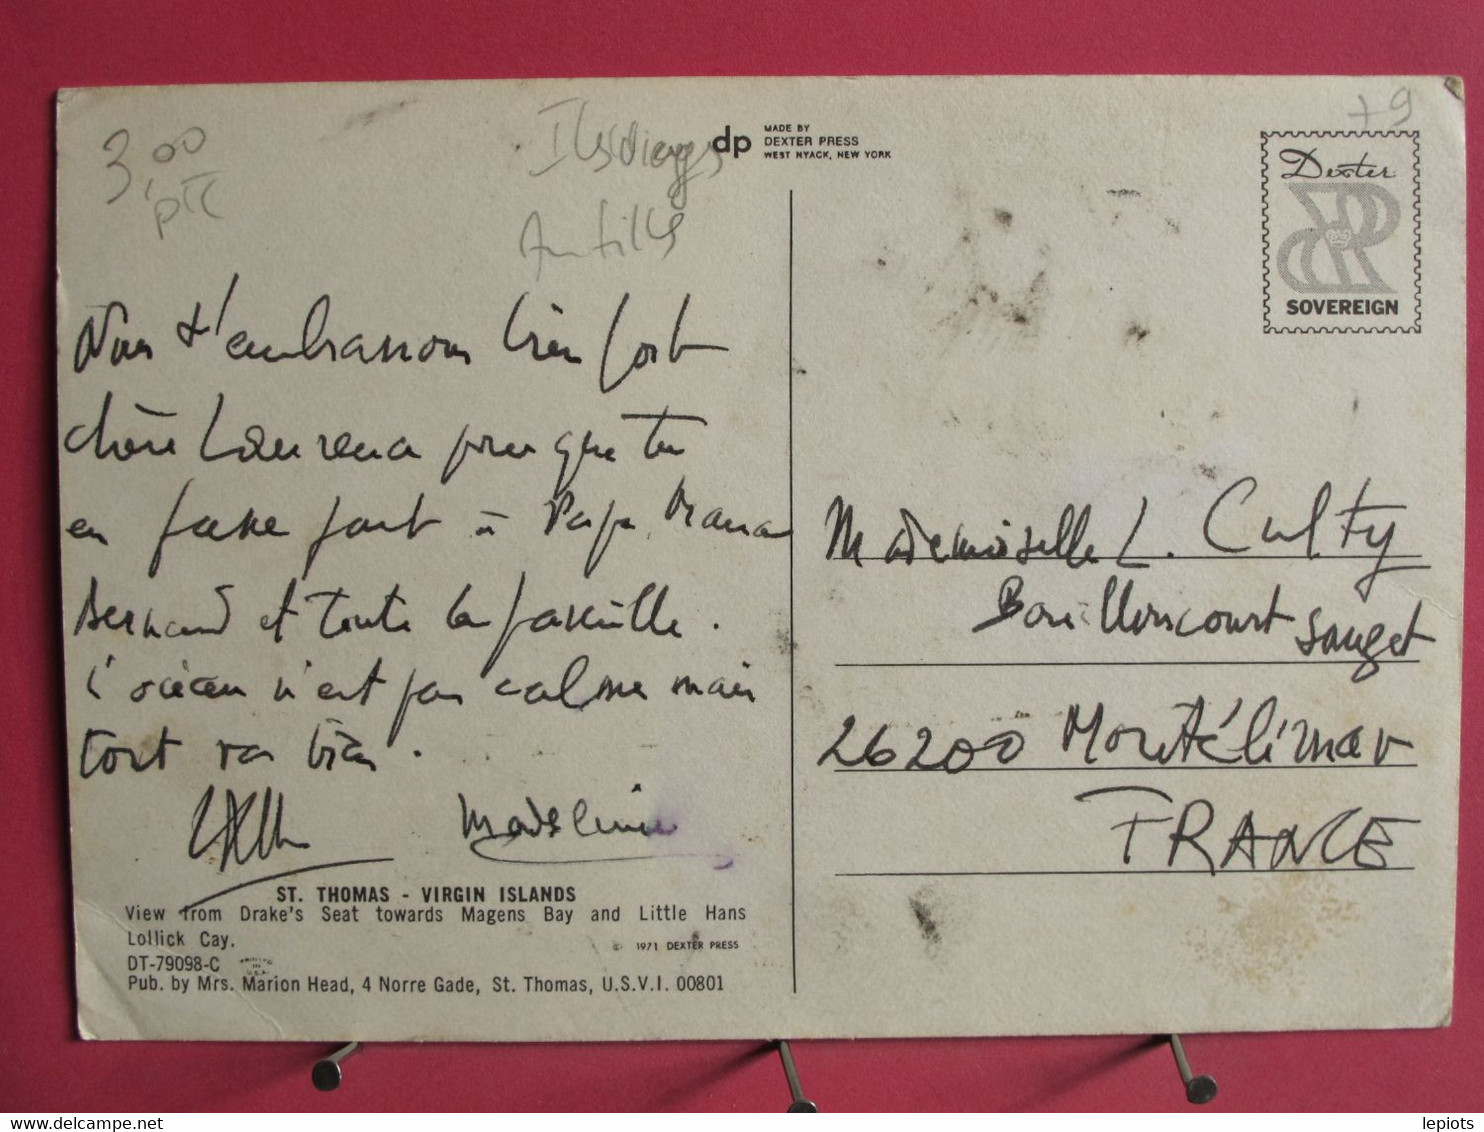 3,00
ptc
Iles Vierges
Antilles
+9
dp
MADE BY
DEXTER PRESS
WEST NYACK, NEW YORK
Dexter
SOVEREIGN
Nous t'embrassons bien fort
chère Laurence pour que tu
en fasse part à Papa, Maman
Bernard et toute la famille.
L'océan n'est pas calme mais
tout va bien.
Madeleine
Mademoiselle L. Culty
26200 Montélimar
FRANCE
ST. THOMAS - VIRGIN ISLANDS
View from Drake's Seat towards Magens Bay and Little Hans
Lollick Cay.
© 1971 DEXTER PRESS
DT-79098-C
PRINTED IN U.S.A.
Pub. by Mrs. Marion Head, 4 Norre Gade, St. Thomas, U.S.V.I. 00801
delcampe.net
lepiots